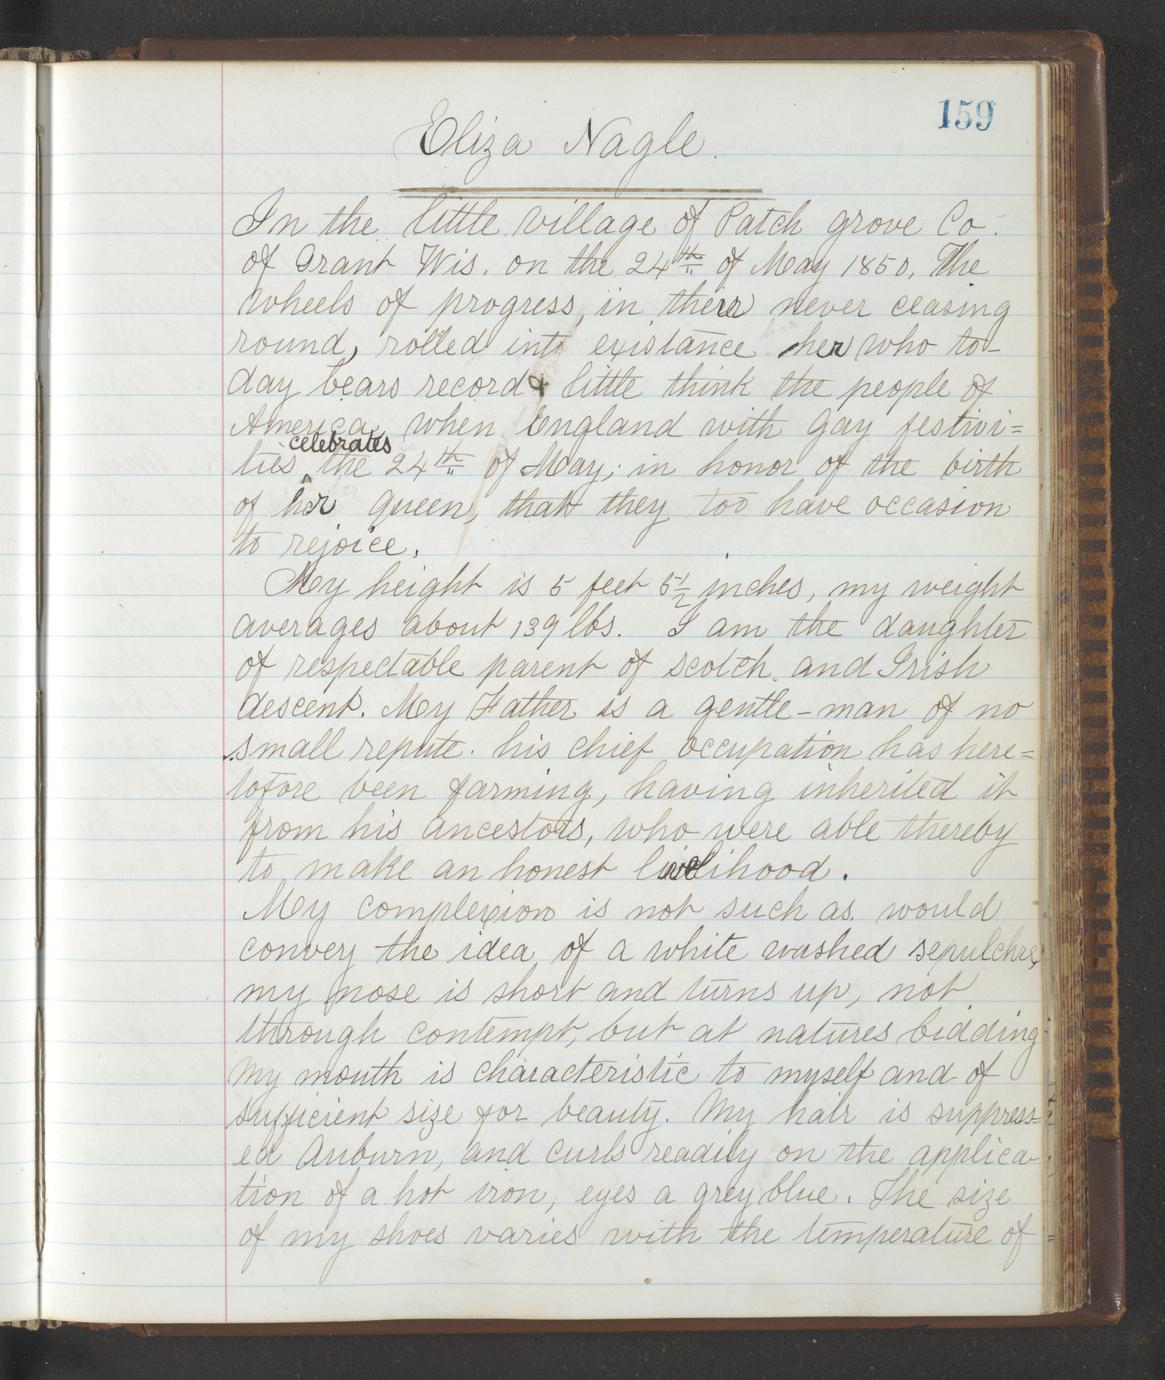 159
Eliza Nagle.
In the little village of Patch grove Co.
of Grant Wis. on the 24th of May 1850. The
wheels of progress, in their never ceasing
round, rolled into existance her who to-
day bears record & little think the people of
America, when England with gay festivi=
celebrates
ties the 24th of May; in honor of the birth
of her queen, that they too have occasion
to rejoice.
My height is 5 feet 5 1/2 inches, my weight
averages about 139 lbs. I am the daughter
of respectable parent of scotch and Irish
descent. My Father is a gentle-man of no
small repute. his chief occupation has here=
tofore been farming, having inherited it
from his ancestors, who were able thereby
to make an honest livelihood.
My complexion is not such as would
convey the idea of a white washed sepulchre,
my nose is short and turns up, not
through contempt, but at natures bidding
My mouth is characteristic to myself and of
sufficient size for beauty. My hair is suppress=
ed Auburn, and curls readily on the applica-
tion of a hot iron, eyes a grey blue. The size
of my shoes varies with the temperature of